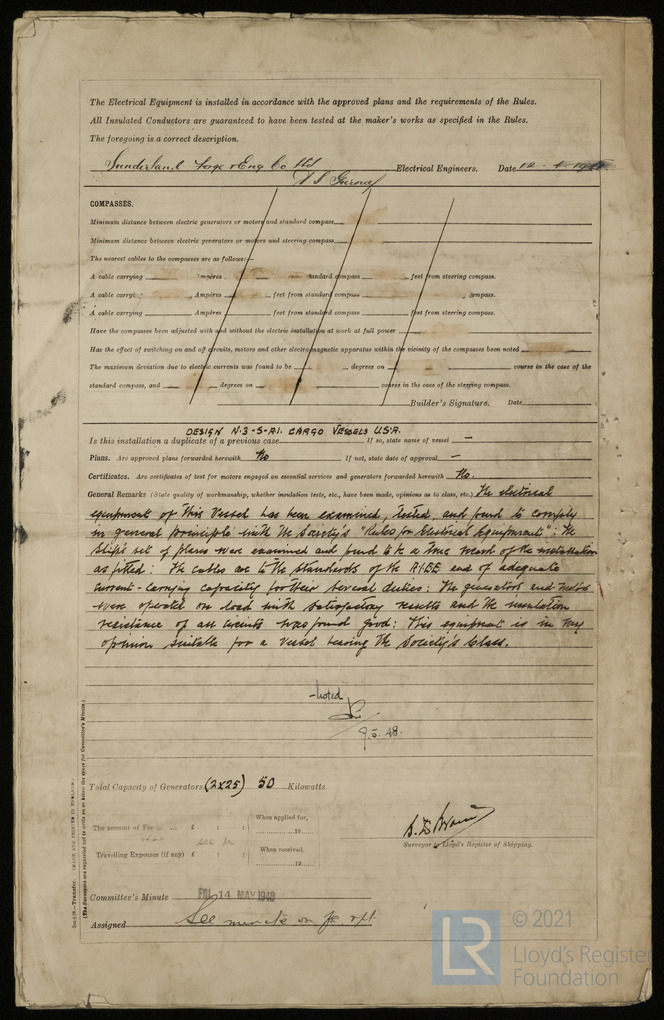 The Electrical Equipment is installed in accordance with the approved plans and the requirements of the Rules.
All Insulated Conductors are guaranteed to have been tested at the maker's works as specified in the Rules.
The foregoing is a correct description.
Sunderland Forge & Eng Co Ltd Electrical Engineers. Date 12 - 4 -
COMPASSES.
Minimum distance between electric generators or motors and standard compass
Minimum distance between electric generators or motors and steering compass
The nearest cables to the compasses are as follows:—
A cable carrying Ampères standard compass feet from steering compass.
A cable carrying Ampères feet from standard compass compass.
A cable carrying Ampères feet from standard compass feet from steering compass.
Have the compasses been adjusted with and without the electric installation at work at full power
Has the effect of switching on and off circuits, motors and other electro-magnetic apparatus within the vicinity of the compasses been noted
The maximum deviation due to electric currents was found to be degrees on course in the case of the
standard compass, and degrees on course in the case of the steering compass.
Builder's Signature. Date
DESIGN N.3-S-A1. CARGO VESSELS U.S.A.
Is this installation a duplicate of a previous case If so, state name of vessel —
Plans. Are approved plans forwarded herewith No If not, state date of approval —
Certificates. Are certificates of test for motors engaged on essential services and generators forwarded herewith No.
General Remarks (State quality of workmanship, whether insulation tests, etc., have been made, opinions as to class, etc.) The electrical
equipment of this Vessel has been examined, tested, and found to comply
in general principle with the Society's "Rules for Electrical Equipment": The
Ship's set of plans were examined and found to be a true record of the installation
as fitted: The cables are to the standards of the AIEE and of adequate
current-carrying capacity for their several duties: The generators and motors
were operated on load with satisfactory results and the insulation
resistance of all circuits was found good: This equipment is in my
opinion suitable for a Vessel bearing the Society's Class.
Noted
9.5.48.
Total Capacity of Generators (2x25) 50 Kilowatts.
The amount of Fee ... £ : :
When applied for,
19
Travelling Expenses (if any) £ : :
When received,
19
Surveyor to Lloyd's Register of Shipping.
Committee's Minute FRI 14 MAY 1948
Assigned See minute on rpt
(MADE AND PRINTED IN ENGLAND.)
(The Surveyors are requested not to write on or below the space for Committee's Minute.)
© 2021
LR
Lloyd's Register
Foundation